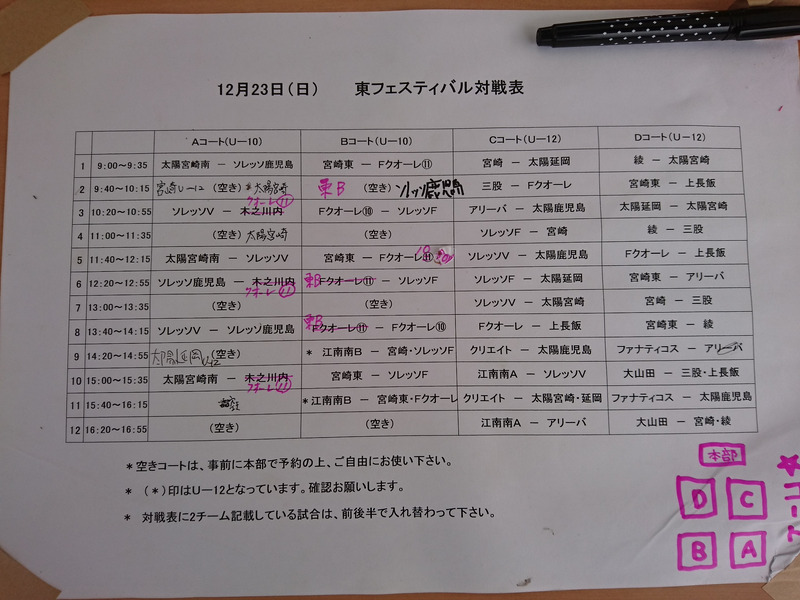 12月23日(日)　東フェスティバル対戦表
Aコート(U－10) Bコート(U－10) Cコート(U－12) Dコート(U－12)
1 9:00～9:35 太陽宮崎南 － ソレッソ鹿児島 宮崎東 － Fクオーレ⑪ 宮崎 － 太陽延岡 綾 － 太陽宮崎
2 9:40～10:15 宮崎U-12 (空き) *太陽宮崎 栗B (空き) ソレッソ鹿児島 三股 － Fクオーレ 宮崎東 － 上長飯
クオーレ⑪
3 10:20～10:55 ソレッソV － 木之川内 Fクオーレ⑩ － ソレッソF アリーバ － 太陽鹿児島 太陽延岡 － 太陽宮崎
4 11:00～11:35 (空き) 太陽宮崎 (空き) ソレッソF － 宮崎 綾 － 三股
5 11:40～12:15 太陽宮崎南 － ソレッソV 宮崎東 － Fクオーレ⑪ 10 ソレッソV － 太陽鹿児島 Fクオーレ － 上長飯
6 12:20～12:55 ソレッソ鹿児島 － 木之川内 栗B Fクオーレ⑪ － ソレッソF ソレッソF － 太陽延岡 宮崎東 － アリーバ
クオーレ⑪
7 13:00～13:35 (空き) (空き) ソレッソV － 太陽宮崎 宮崎 － 三股
8 13:40～14:15 ソレッソV － ソレッソ鹿児島 栗B Fクオーレ⑪ － Fクオーレ⑩ Fクオーレ － 上長飯 宮崎東 － 綾
9 14:20～14:55 太陽延岡U-12 (空き) * 江南南B － 宮崎・ソレッソF クリエイト － 太陽鹿児島 ファナティコス － アリーバ
10 15:00～15:35 太陽宮崎南 － 木之川内 宮崎東 － ソレッソF 江南南A － ソレッソV 大山田 － 三股・上長飯
クオーレ⑪
11 15:40～16:15 * 江南南B － 宮崎東・Fクオーレ クリエイト － 太陽宮崎・延岡 ファナティコス － 太陽鹿児島
12 16:20～16:55 (空き) (空き) 江南南A － アリーバ 大山田 － 宮崎・綾
＊空きコートは、事前に本部で予約の上、ご自由にお使い下さい。
＊ (＊)印はU－12となっています。確認お願いします。
＊ 対戦表に2チーム記載している試合は、前後半で入れ替わって下さい。
本部
D C
B A
★コート